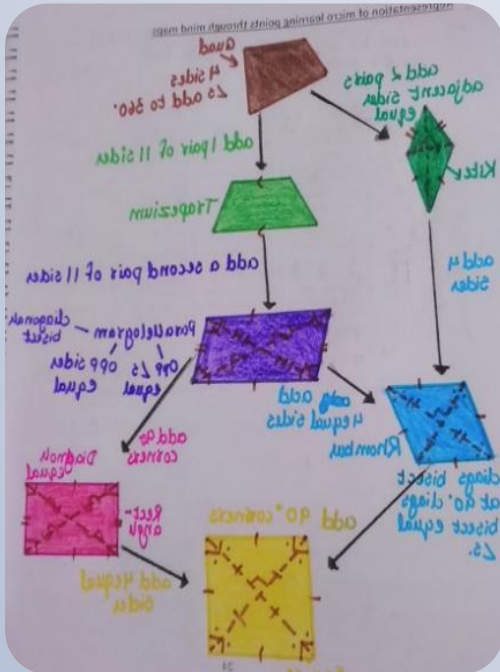 Representation of micro learning points through mind maps
Quad
4 sides
∠s add to 360°
add 2 pairs
adjacent sides
equal
Kite
add 1 pair of 11 sides
Trapezium
add a second pair of 11 sides
add 4
sides
Parallelogram
diagonals
bisect
opp sides
equal
opp ∠s
equal
add
4 equal sides
Rhombus
add 90
corners
Diagonals
equal
Rect-
angle
diags bisect
at 90° diags
bisect equal
∠s.
add 90° corners
add 4 equal
sides